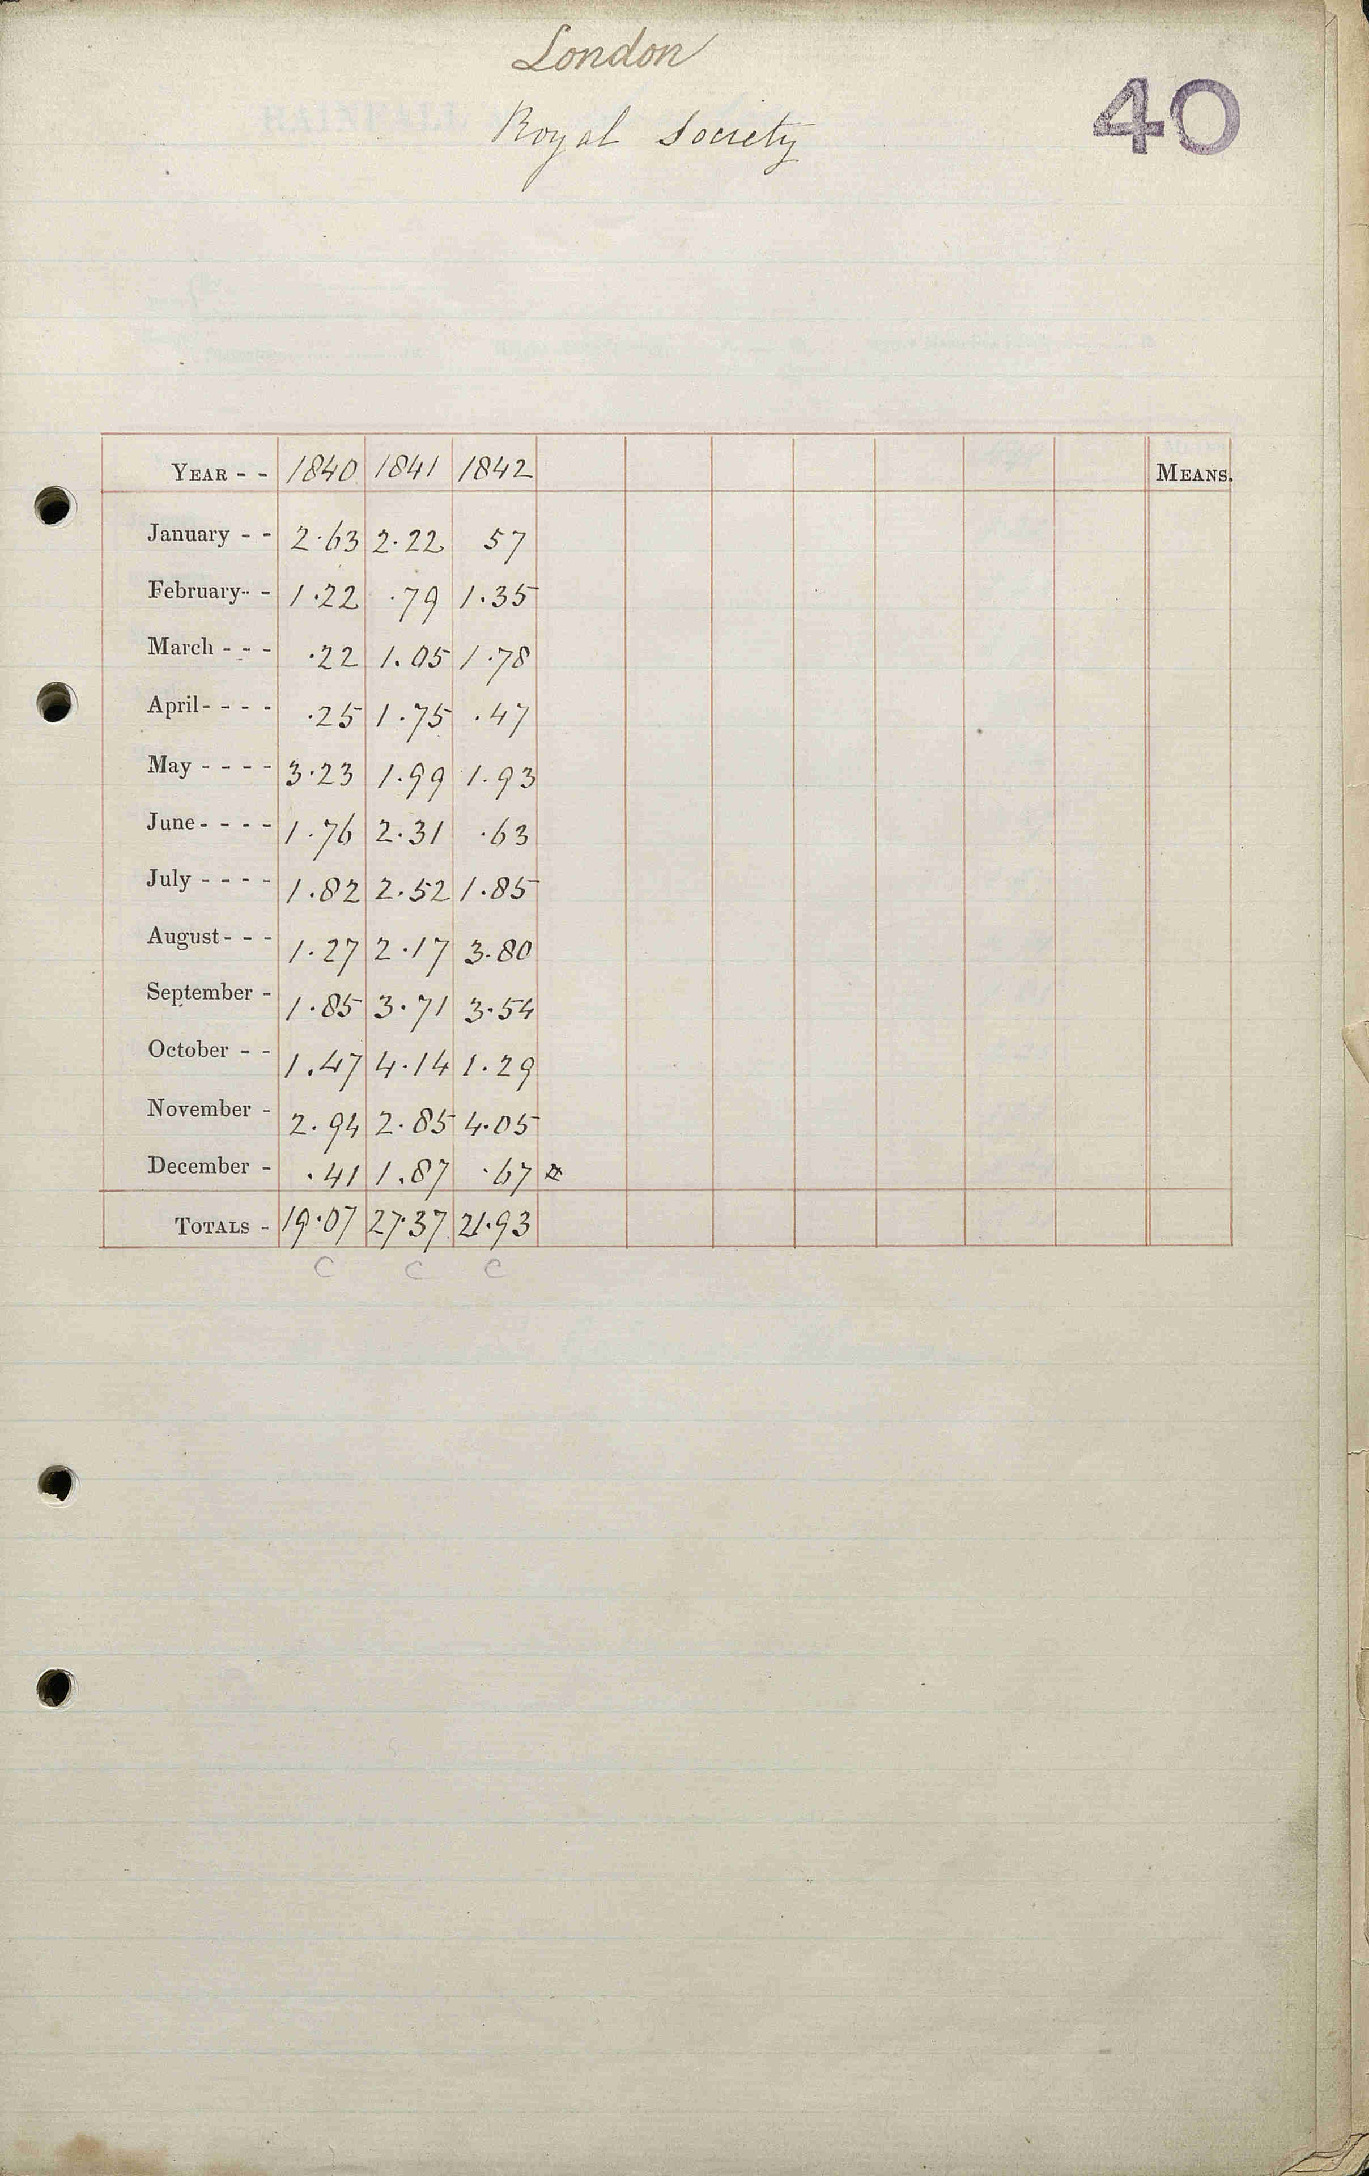 London
40
Royal Society
YEAR - - 1840 1841 1842 MEANS.
January - - 2.63 2.22 57
February - - 1.22 .79 1.35
March - - - .22 1.05 1.78
April - - - - .25 1.75 .47
May - - - - 3.23 1.99 1.93
June - - - - 1.76 2.31 .63
July - - - - 1.82 2.52 1.85
August - - - 1.27 2.17 3.80
September - 1.85 3.71 3.54
October - - 1.47 4.14 1.29
November - 2.94 2.85 4.05
December - .41 1.87 .67
TOTALS - 19.07 27.37 21.93
C C C